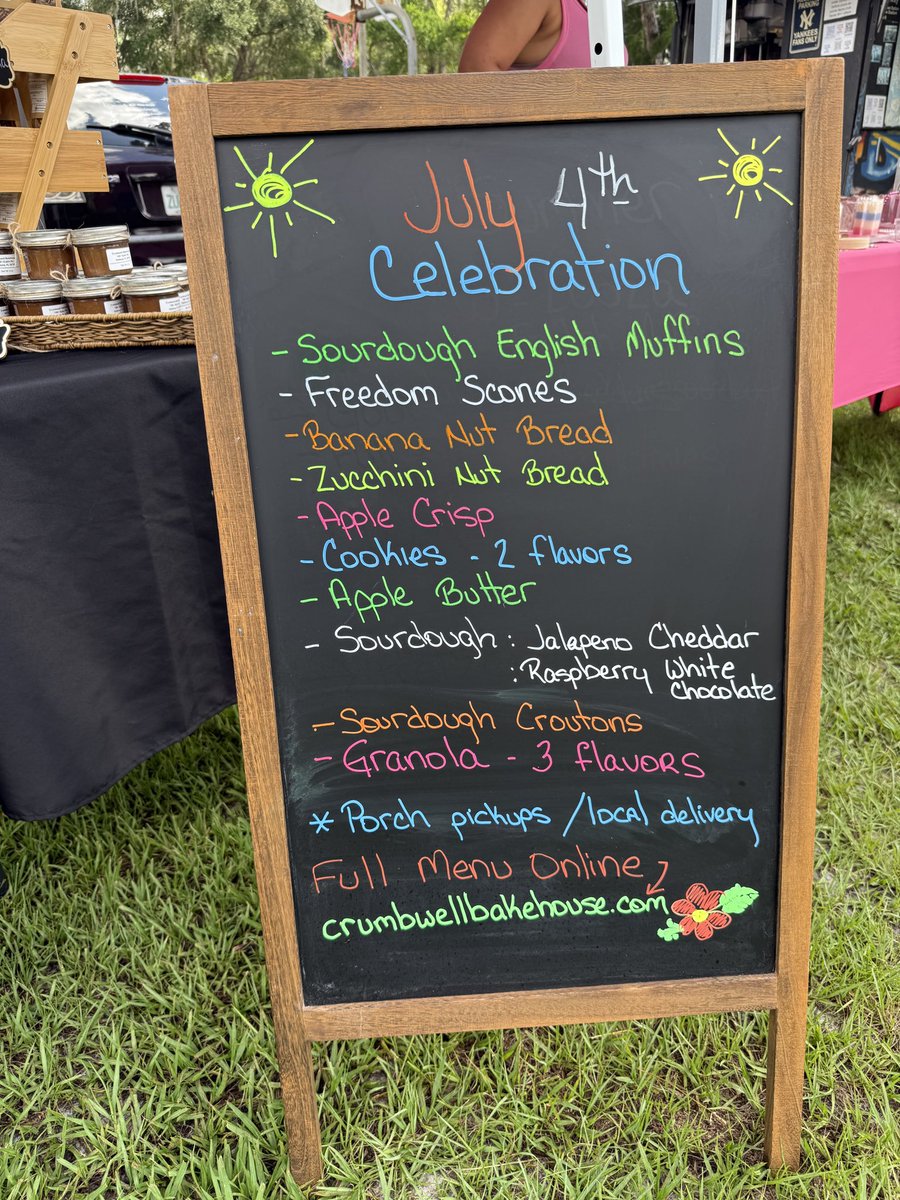 July 4th
Celebration
- Sourdough English Muffins
- Freedom Scones
- Banana Nut Bread
- Zucchini Nut Bread
- Apple Crisp
- Cookies - 2 flavors
- Apple Butter
- Sourdough : Jalapeno Cheddar
: Raspberry White
Chocolate
- Sourdough Croutons
- Granola - 3 flavors
* Porch pickups / local delivery
Full Menu Online
crumbwellbakehouse.com
PARKING
YANKEES
FANS ONLY